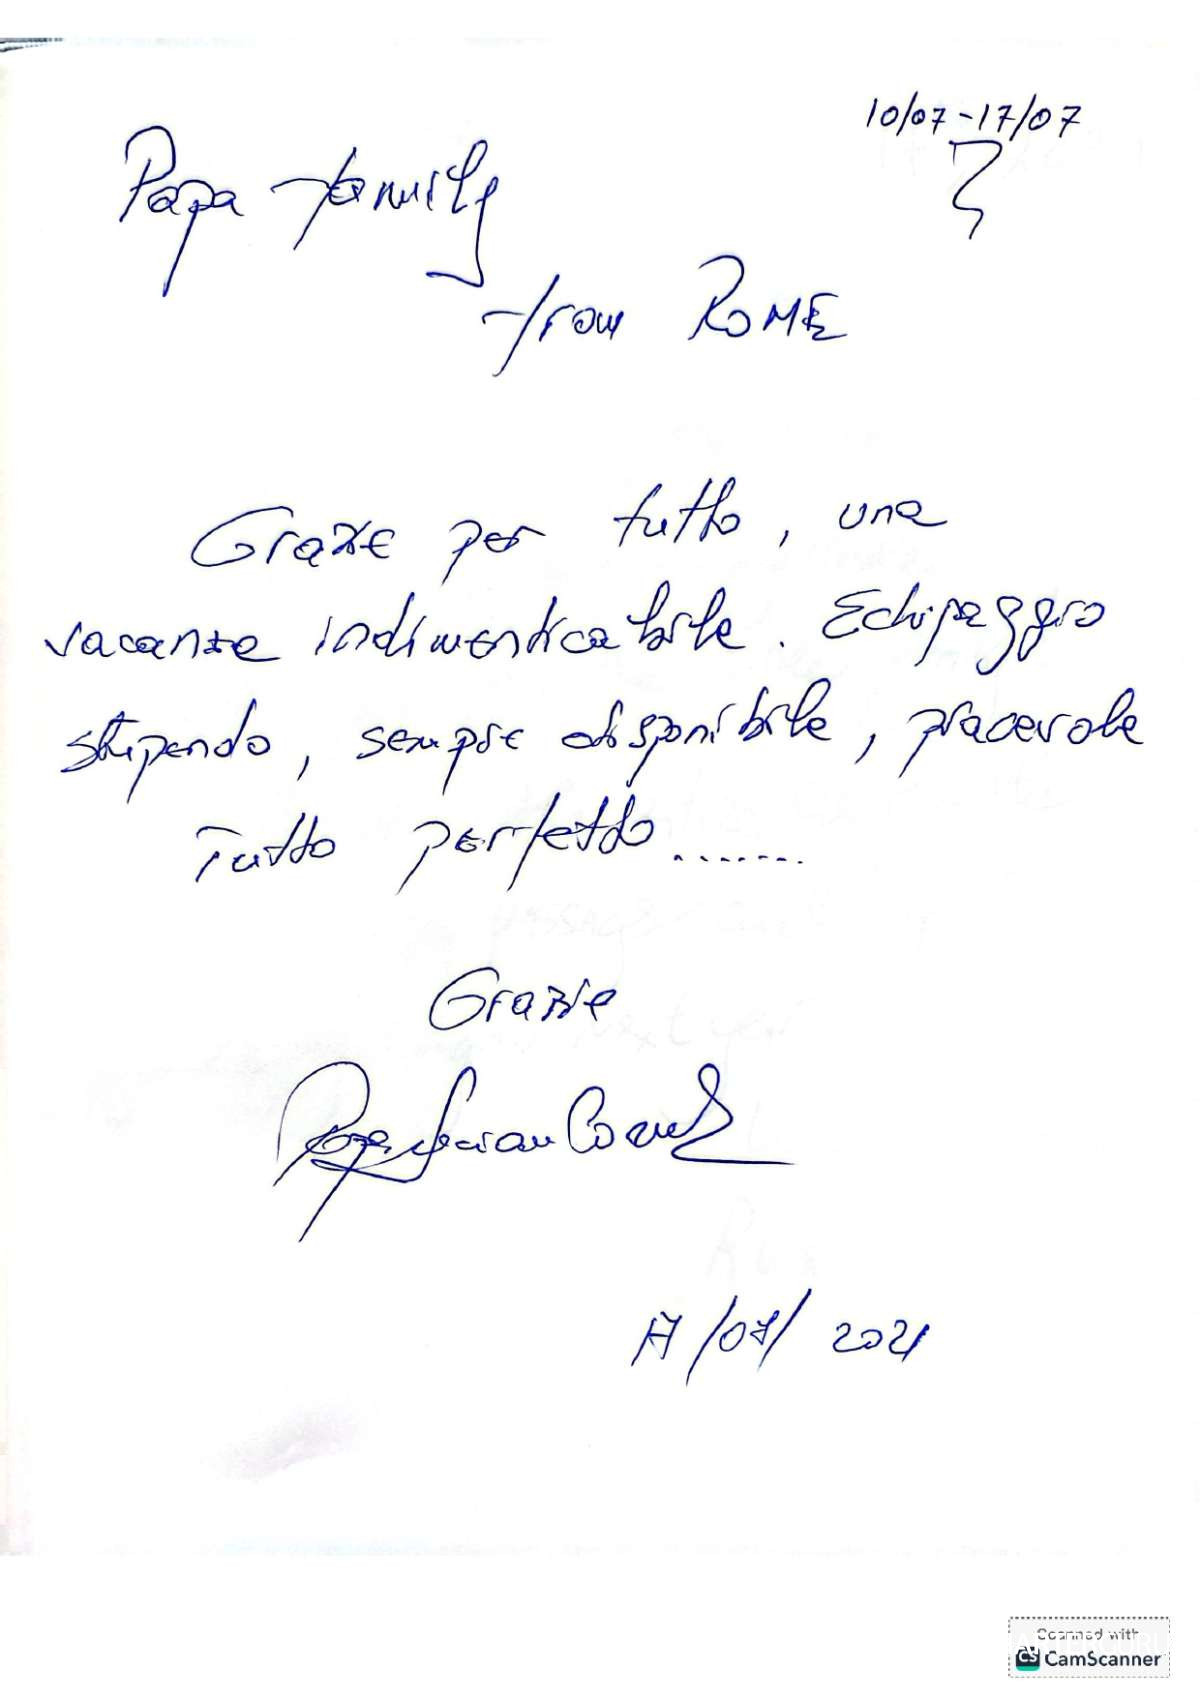 10/07-17/07
Papa family
from ROME
Grazie per tutto, una
vacanza indimenticabile. Echipaggio
stupendo, sempre disponibile, piacevole
Tutto perfetto........
Grazie
Papa
17/07/2021
Scanned with
CS CamScanner